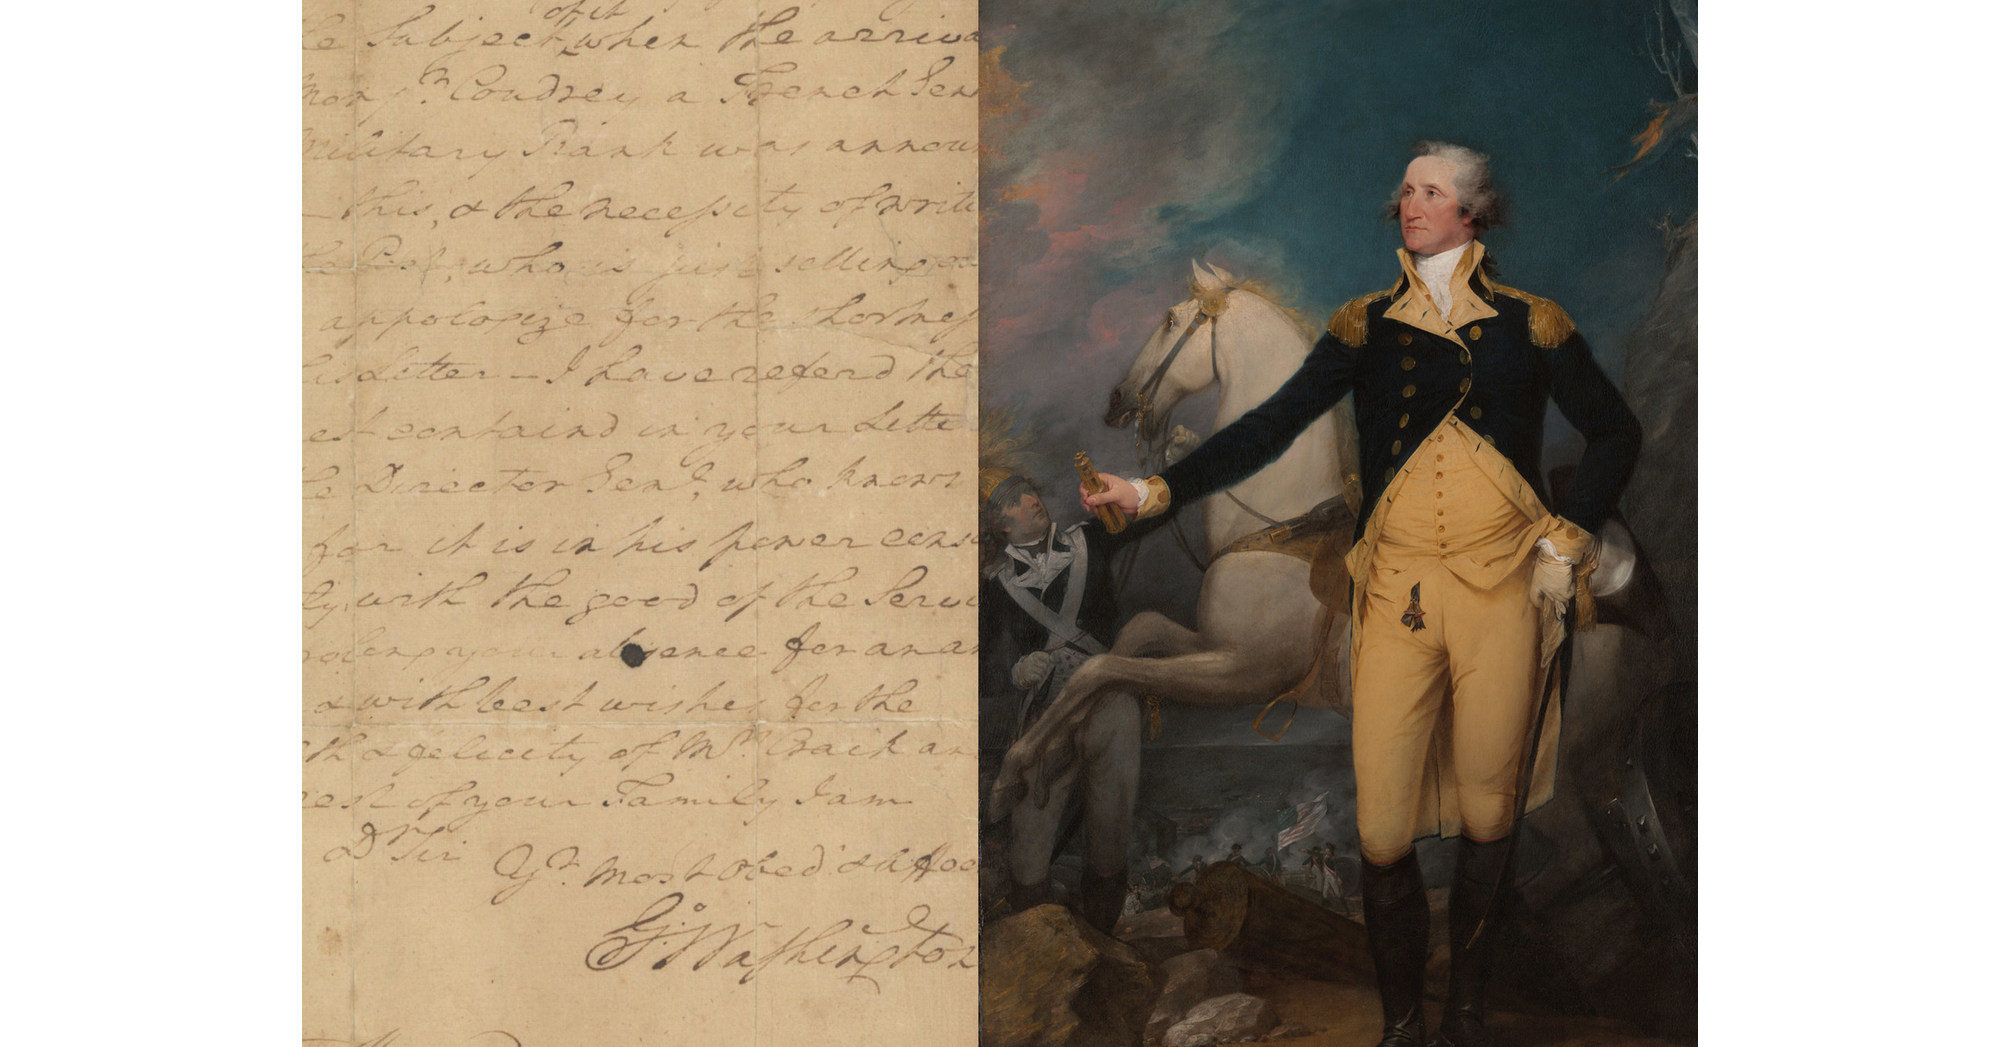 of it
Subject when the arriva
Coudrey a French Gen
Military Rank was announ
this, & the necessity of write
who is just setting
appologize for the shortness
Letter — I have referd the
contained in your Letter
Director Genl, who knows
for it is in his power cons
ly with the good of the Servi
your absence for an an
& with best wishes for the
th & felicity of Mrs. Craik an
rest of your Family I am
Dr Sir
Yr. Most Obed & Affec
Go: Washington